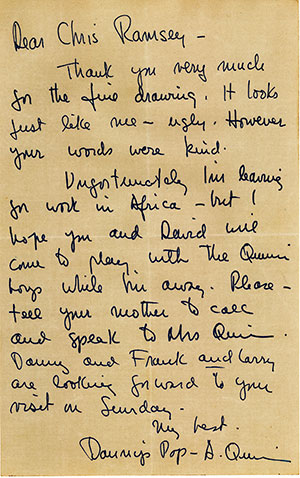 Dear Chris Ramsey -
Thank you very much
for the fine drawing. It looks
just like me - ugly. However
your words were kind.
Unfortunately I'm leaving
for work in Africa - but I
hope you and David will
come to play with the Quinn
boys while I'm away. Please -
tell your mother to call
and speak to Mrs Quinn.
Danny and Frank and Larry
are looking forward to your
visit on Sunday.
My best.
Danny's Pop - A. Quinn